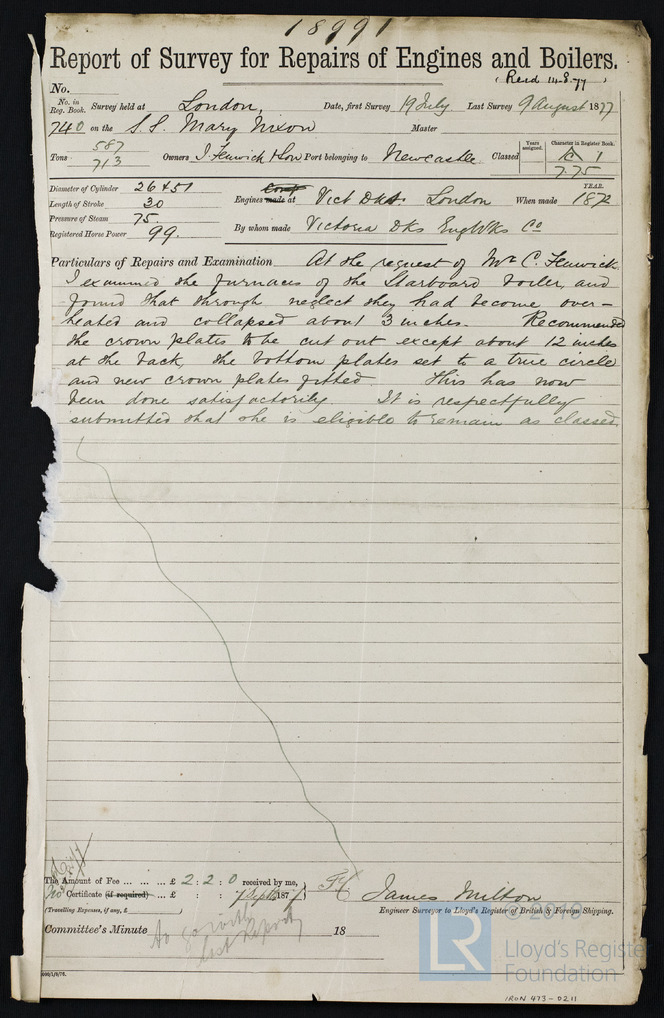 18991
Report of Survey for Repairs of Engines and Boilers.
(Recd 14.8.77)
No.
No. in Reg. Book. Survey held at London, Date, first Survey 19 July Last Survey 9 August 1877
740 on the S.S. Mary Nixon Master
Tons 587 713 Owners J. Fenwick & Son Port belonging to Newcastle Classed Years assigned. Character in Register Book. A 1 7.75
Diameter of Cylinder 26 & 51
Length of Stroke 30
Pressure of Steam 75
Registered Horse Power 99.
Engines made at Vict Dks. London When made YEAR. 1872
By whom made Victoria Dks Eng Wks Co
Particulars of Repairs and Examination At the request of Mr C. Fenwick
I examined the furnaces of the Starboard boiler, and
found that through neglect they had become over-
heated and collapsed about 3 inches. Recommended
the crown plates to be cut out except about 12 inches
at the back, the bottom plates set to a true circle
and new crown plates fitted This has now
been done satisfactorily. It is respectfully
submitted that she is eligible to remain as classed.
The Amount of Fee ... ... ... £ 2 : 2 : 0 received by me,
Certificate (if required) ... £ : : 7 Sept 1877
(Travelling Expenses, if any, £ )
James Milton
Engineer Surveyor to Lloyd's Register of British & Foreign Shipping.
Committee's Minute 18
to go with last Report
© 2019
LR
Lloyd's Register
Foundation
IRON 473-0211